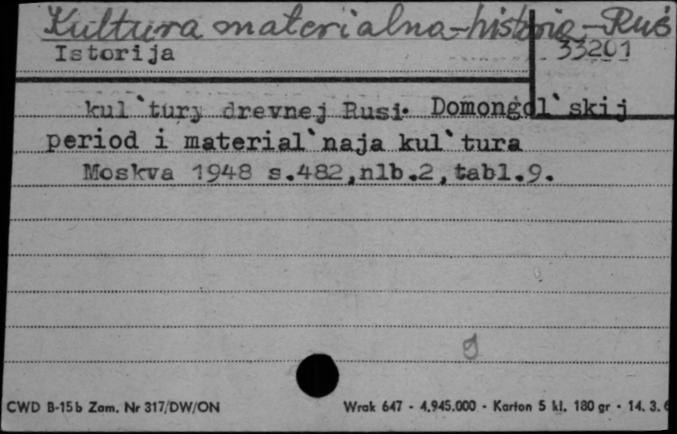 Kultura materialna-historia-Ruś
Istorija
33201
kul`tury drevnej Rusi. Domongol`skij
period i material`naja kul`tura
Moskva 1948 s.482,nlb.2,tabl.9.
9
CWD B-15b Zam. Nr 317/DW/ON
Wrak 647 - 4.945.000 - Karton 5 kl. 180 gr - 14. 3.